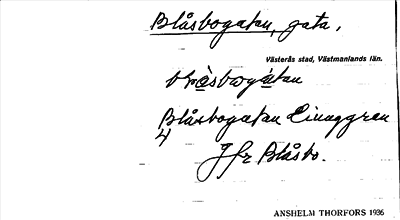 Blåsbogatan, gata.
Västerås stad, Västmanlands län.
Blåsbogatan Linnggren
4
Jfr Blåsbo.
ANSHELM THORFORS 1936